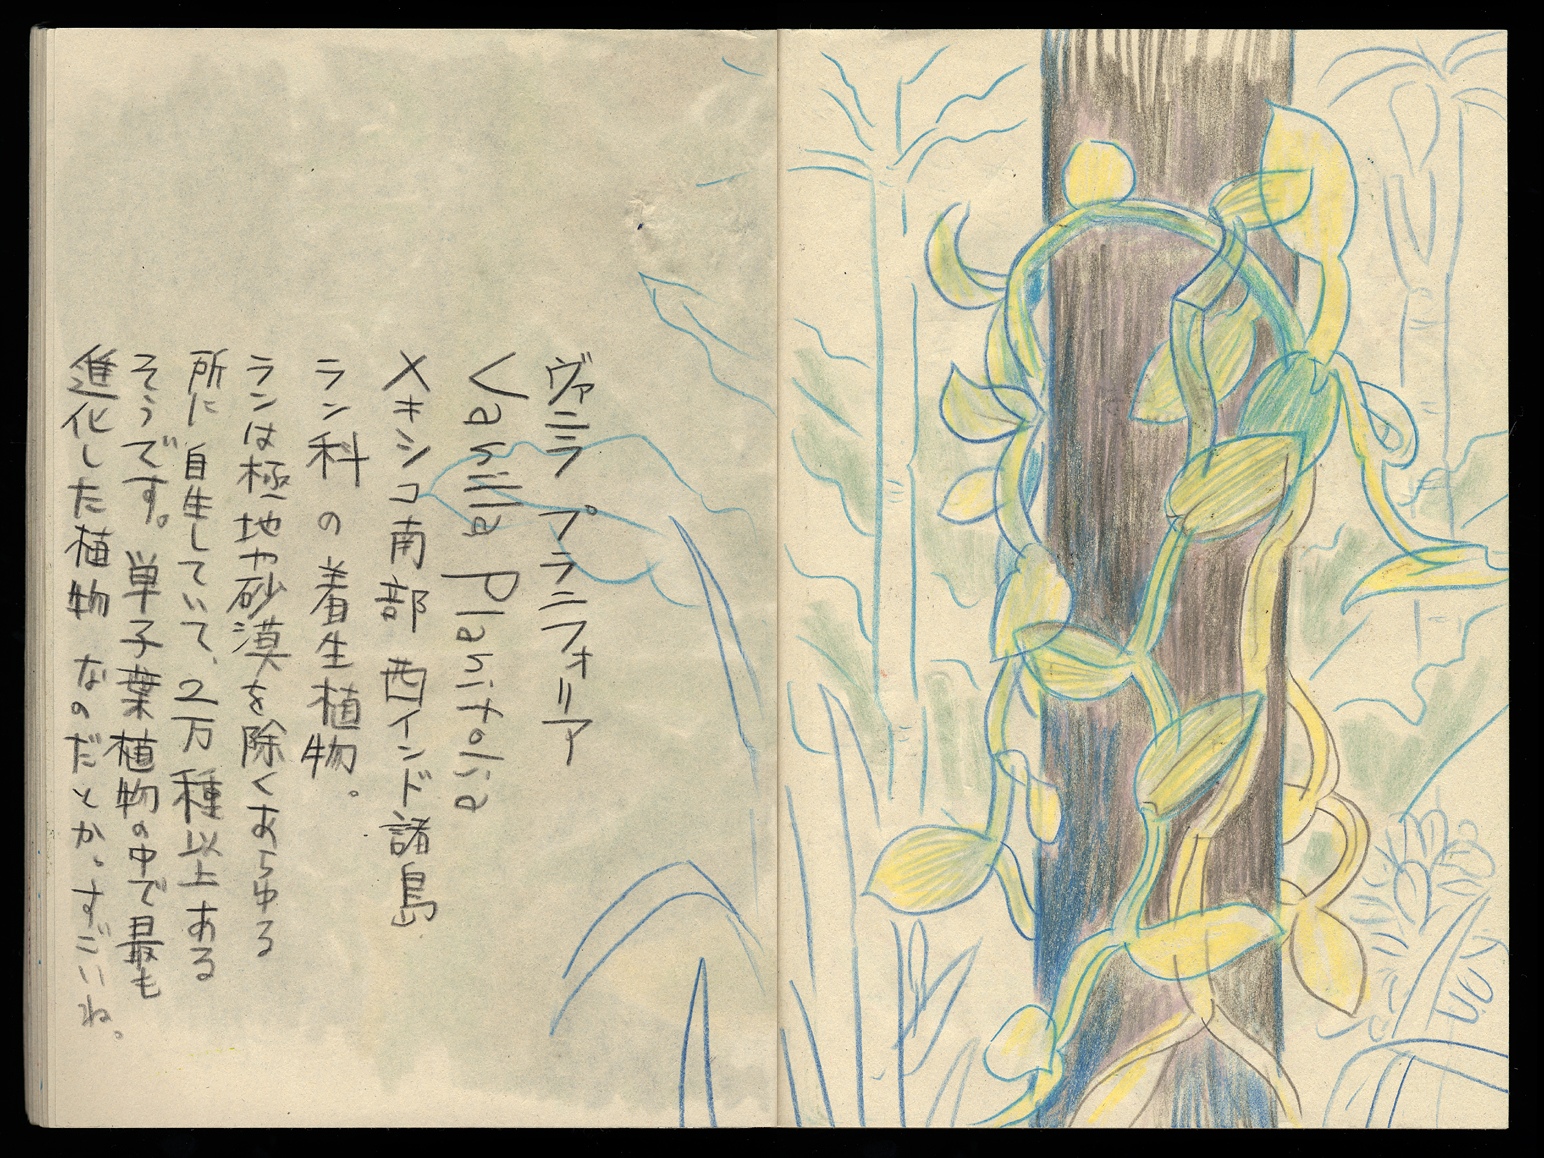 ヴァニラ プラニフォリア
Vanilla Planifolia
メキシコ南部 西インド諸島
ラン科の着生植物。
ランは極地や砂漠を除くあらゆる
所に自生していて、2万種以上ある
そうです。単子葉植物の中で最も
進化した植物なのだとか。すごいね。